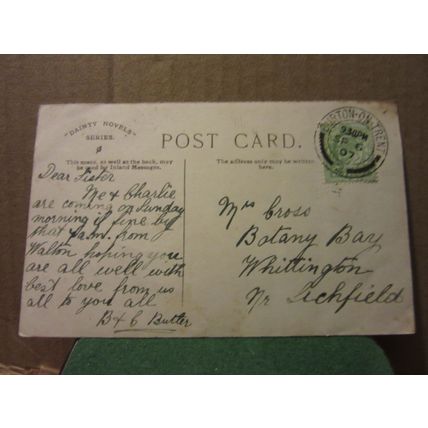 "DAINTY NOVELS"
SERIES.
POST CARD.
This space, as well as the back, may
be used for Inland Messages.
The address only may be written
here.
BURTON-ON-TRENT
9 30 PM
SP 6
07
Dear Sister
Me & Charlie
are coming on Sunday
morning if fine by
that train from
Walton hoping you
are all well with
best love from us
all to you all
B & C Butler
Mrs Cross
Botany Bay
Whittington
Nr Lichfield